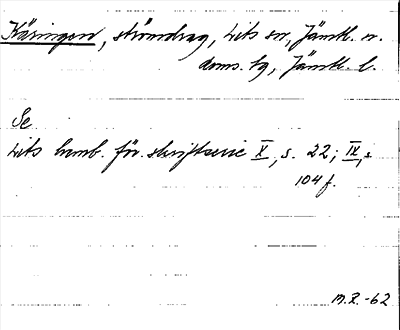 Käringen, strömdrag, Lits sn, Jämtl. n.
doms. tg, Jämtl. l.
Se
Lits hemb. för. skriftserie X, s. 22; IX, s.
104 f.
M.R.-62